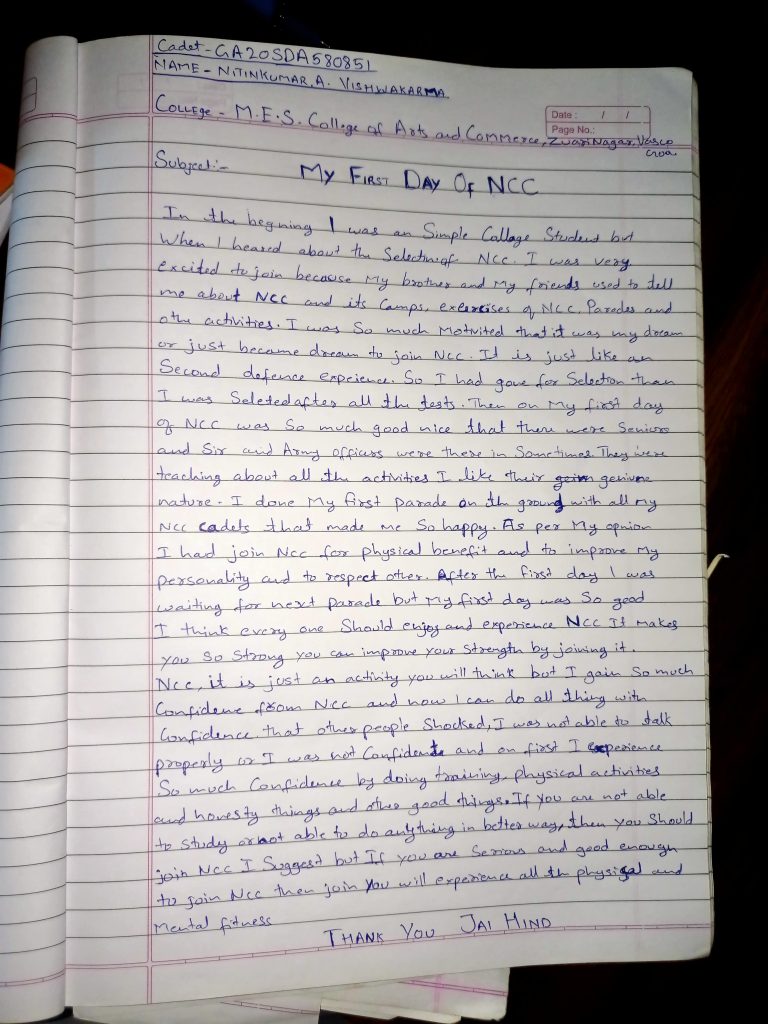 Cadet - GA20SDA580851
NAME - NITINKUMAR.A. VISHWAKARMA
College - M.E.S. College of Arts and Commerce, Zuari Nagar, Vasco
Goa
Date : / /
Page No.:
Subject:- My First Day Of NCC
In the begning I was an Simple Collage Student but
When I heared about the Selection of NCC. I was very
excited to join because My brother and My friends used to tell
me about NCC and its Camps, exercises of NCC, Parades and
othe activities. I was So much Motvited that it was my dream
or just became dream to join NCC. It is just like an
Second defence expeience. So I had gone for Selection than
I was Seleted after all the tests. Then on My first day
of NCC was So much good nice that there were Seniors
and Sir and Army officers were there in Sometimes. They were
teaching about all the activities I like their geniune
nature. I done My first Parade on the ground with all my
NCC cadets that made me So happy. As per My opnion
I had join NCC for physical benefit and to improve My
personality and to respect other. After the first day I was
waiting for next Parade but My first day was So good
I think every one Should enjoy and experience NCC It Makes
you So Strong you can improve your Strength by joining it.
NCC, it is just an activity you will think but I gain So much
Confidence from NCC and now I can do all thing with
Confidence that other people Shocked, I was not able to talk
properly or I was not Confident and on first I experience
So much Confidence by doing training, physical activities
and honesty things and other good things. If you are not able
to Study or not able to do anything in better way, then you Should
join NCC I Suggest but If you are Serious and good enough
to join NCC then join You will experience all the physical and
Mental fitness
THANK YOU JAI HIND